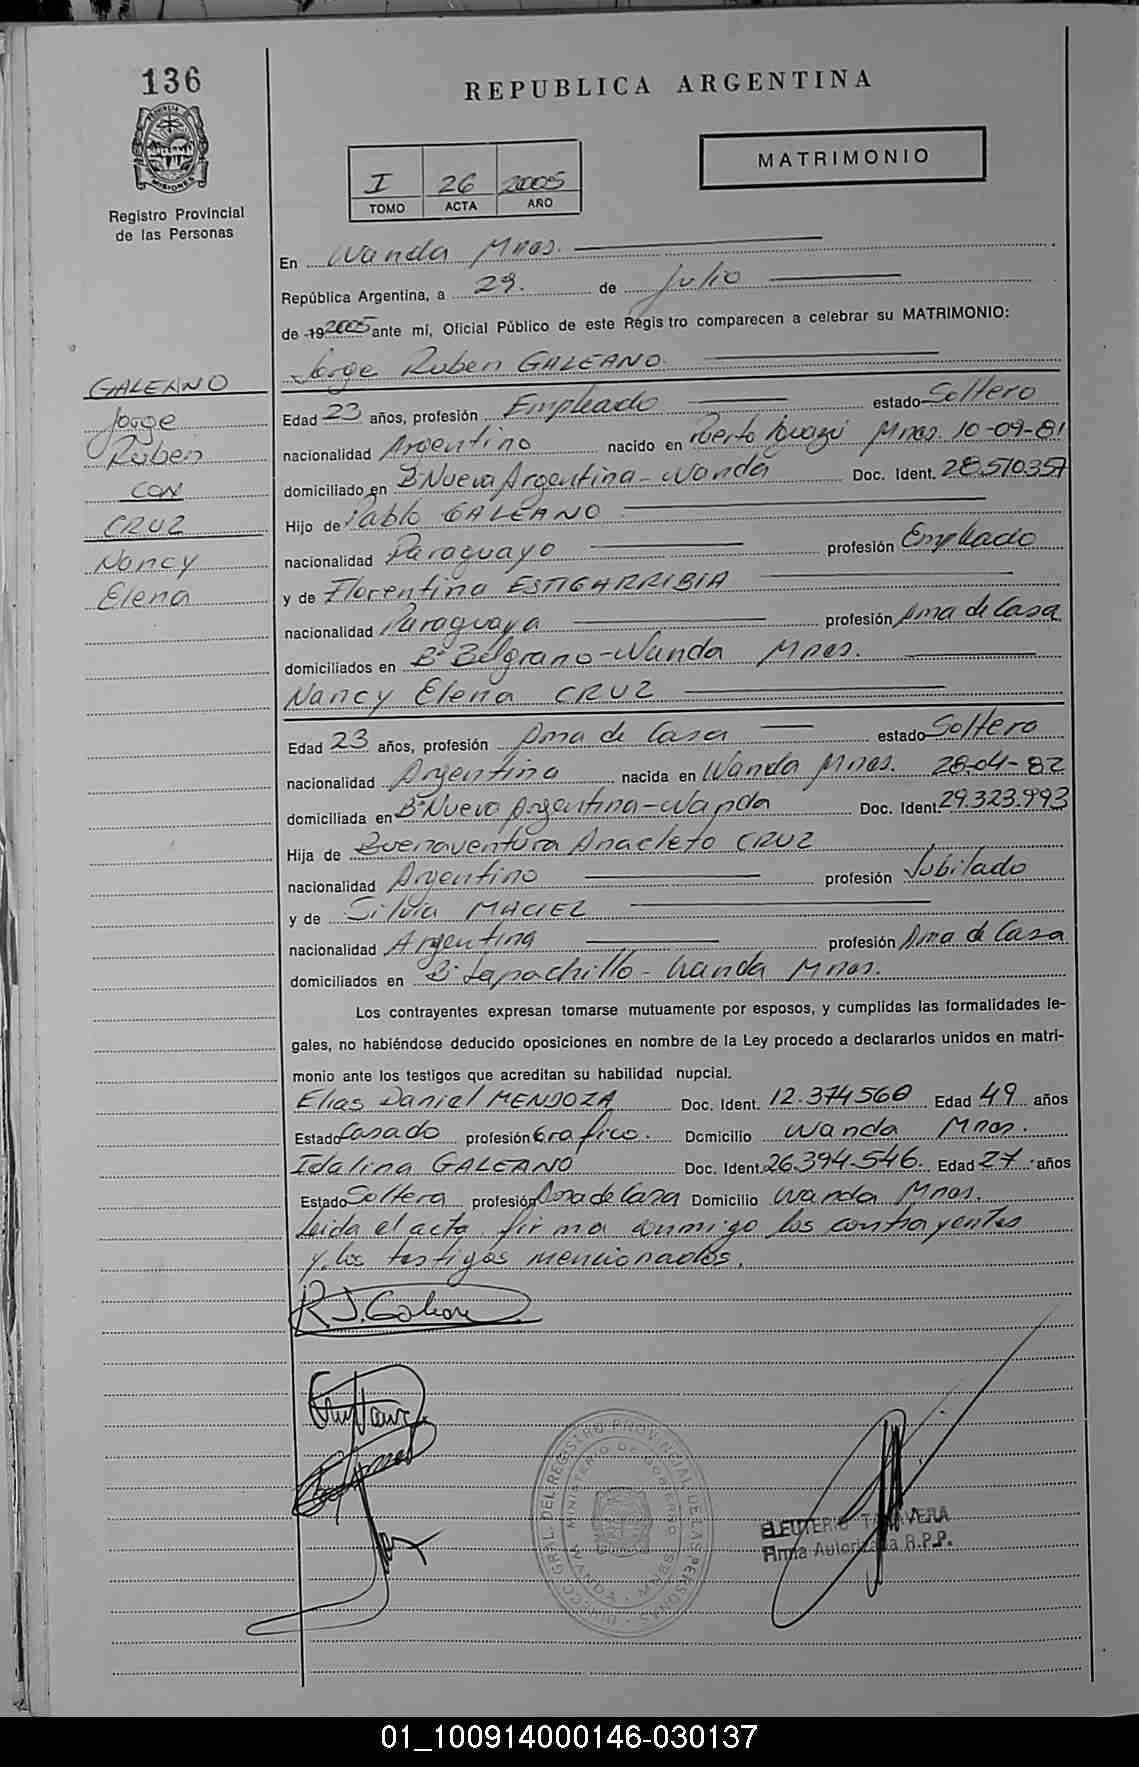 136
REPUBLICA ARGENTINA
PROVINCIA
MISIONES
Registro Provincial
de las Personas
I 26 2005
TOMO ACTA AÑO
MATRIMONIO
En Wanda Mnes.
República Argentina, a 29. de Julio
de 192005 ante mí, Oficial Público de este Registro comparecen a celebrar su MATRIMONIO:
Jorge Ruben GALEANO.
GALEANO
Jorge
Ruben
CON
CRUZ
Nancy
Elena
Edad 23 años, profesión Empleado estado Soltero
nacionalidad Argentino nacido en Puerto Iguazú Mnes. 10-09-81
domiciliado en B° Nueva Argentina - Wanda Doc. Ident. 28.510.357
Hijo de Pablo GALEANO
nacionalidad Paraguayo profesión Empleado
y de Florentina ESTIGARRIBIA
nacionalidad Paraguaya profesión Ama de Casa
domiciliados en B° Belgrano - Wanda Mnes.
Nancy Elena CRUZ
Edad 23 años, profesión Ama de Casa estado Soltero
nacionalidad Argentina nacida en Wanda Mnes. 28-04-82
domiciliada en B° Nueva Argentina - Wanda Doc. Ident. 29.323.993
Hija de Buenaventura Anacleto CRUZ
nacionalidad Argentino profesión Jubilado
y de Silvia MACIEL
nacionalidad Argentina profesión Ama de Casa
domiciliados en B° Lapachillo - Wanda Mnes.
Los contrayentes expresan tomarse mutuamente por esposos, y cumplidas las formalidades le-
gales, no habiéndose deducido oposiciones en nombre de la Ley procedo a declararlos unidos en matri-
monio ante los testigos que acreditan su habilidad nupcial.
Elias Daniel MENDOZA Doc. Ident. 12.374.560 Edad 49 años
Estado Casado profesión Grafico. Domicilio Wanda Mnes.
Idalina GALEANO Doc. Ident. 26.394.546. Edad 27 años
Estado Soltera profesión Ama de Casa Domicilio Wanda Mnes.
Leida el acta firma conmigo los contrayentes
y los testigos mencionados.
DIRECC. GRAL. DEL REGISTRO PROVINCIAL DE LAS PERSONAS
MINISTERIO DE GOBIERNO
WANDA
ELEUTERIO TALAVERA
Firma Autorizada R.P.P.
01_100914000146-030137